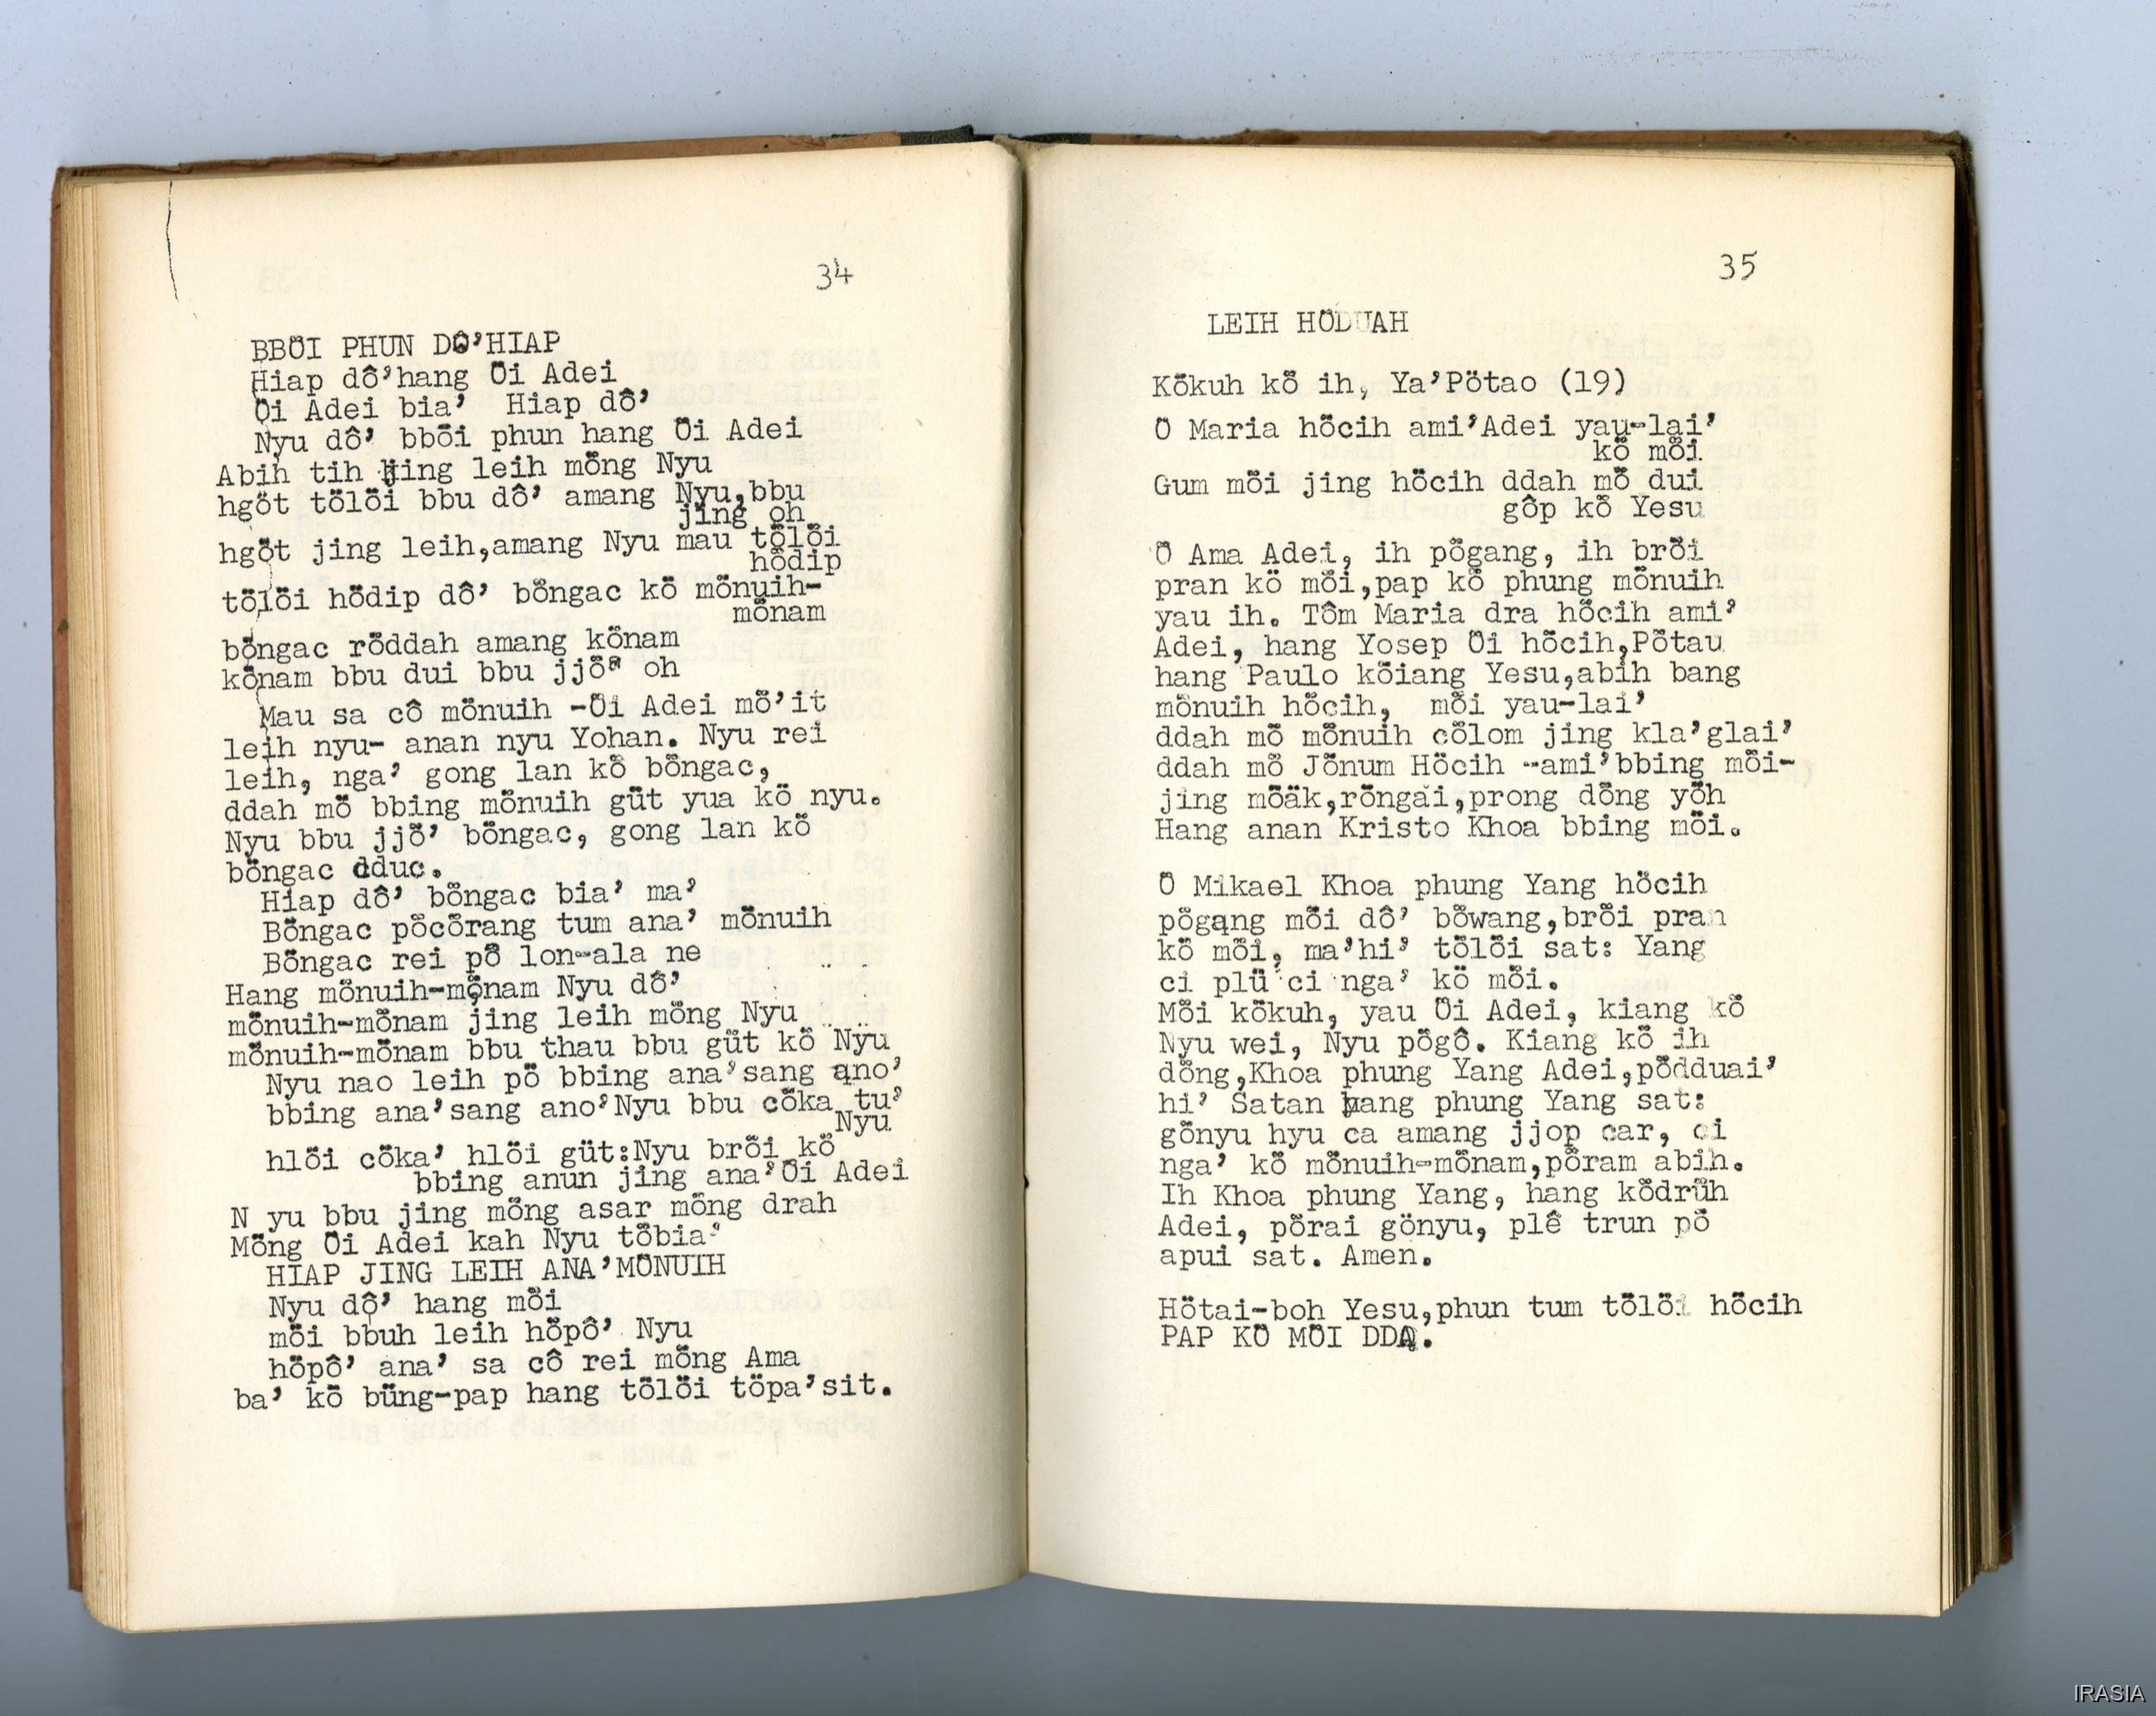 34
BBÖI PHUN DÔ'HIAP
Hiap dô'hang Öi Adei
Öi Adei bia' Hiap dô'
Nyu dô' bböi phun hang Öi Adei
Abih tih jing leih möng Nyu
hgöt tölöi bbu dô' amang Nyu,bbu
jing oh
hgöt jing leih,amang Nyu mau tölöi
hödip
tölöi hödip dô' böngac kö mönuih-
mönam
böngac röddah amang könam
könam bbu dui bbu jjö' oh
Mau sa cô mönuih -Öi Adei mö'it
leih nyu- anan nyu Yohan. Nyu rei
leih, nga' gong lan kö böngac,
ddah mö bbing mönuih güt yua kö nyu.
Nyu bbu jjö' böngac, gong lan kö
böngac dduc.
Hiap dô' böngac bia' ma'
Böngac pöcörang tum ana' mönuih
Böngac rei pö lon-ala ne
Hang mönuih-mönam Nyu dô'
mönuih-mönam jing leih möng Nyu
mönuih-mönam bbu thau bbu güt kö Nyu
Nyu nao leih pö bbing ana'sang ano'
bbing ana'sang ano'Nyu bbu cöka tu'
Nyu
hlöi cöka' hlöi güt:Nyu bröi kö
bbing anun jing ana'Öi Adei
N yu bbu jing möng asar möng drah
Möng Öi Adei kah Nyu töbia'
HIAP JING LEIH ANA'MÖNUIH
Nyu dô' hang möi
möi bbuh leih höpô' Nyu
höpô' ana' sa cô rei möng Ama
ba' kö büng-pap hang tölöi töpa'sit.
35
LEIH HÖDUAH
Kökuh kö ih, Ya'Pötao (19)
Ö Maria höcih ami'Adei yau-lai'
kö möi
Gum möi jing höcih ddah mö dui
gôp kö Yesu
Ö Ama Adei, ih pögang, ih bröi
pran kö möi,pap kö phung mönuih
yau ih. Tôm Maria dra höcih ami'
Adei, hang Yosep Öi höcih,Pötau
hang Paulo köiang Yesu,abih bang
mönuih höcih, möi yau-lai'
ddah mö mönuih cölom jing kla'glai'
ddah mö Jönum Höcih -ami'bbing möi-
jing möäk,röngai,prong döng yöh
Hang anan Kristo Khoa bbing möi.
Ö Mikael Khoa phung Yang höcih
pögang möi dô' böwang,bröi pran
kö möi, ma'hi' tölöi sat: Yang
ci plü ci nga' kö möi.
Möi kökuh, yau Öi Adei, kiang kö
Nyu wei, Nyu pögô. Kiang kö ih
döng,Khoa phung Yang Adei,pödduai'
hi' Satan hang phung Yang sat:
gönyu hyu ca amang jjop car, ci
nga' kö mönuih-mönam,pöram abih.
Ih Khoa phung Yang, hang ködrüh
Adei, pörai gönyu, plê trun pö
apui sat. Amen.
Hötai-boh Yesu,phun tum tölöi höcih
PAP KÖ MÖI DDA.
IRASIA